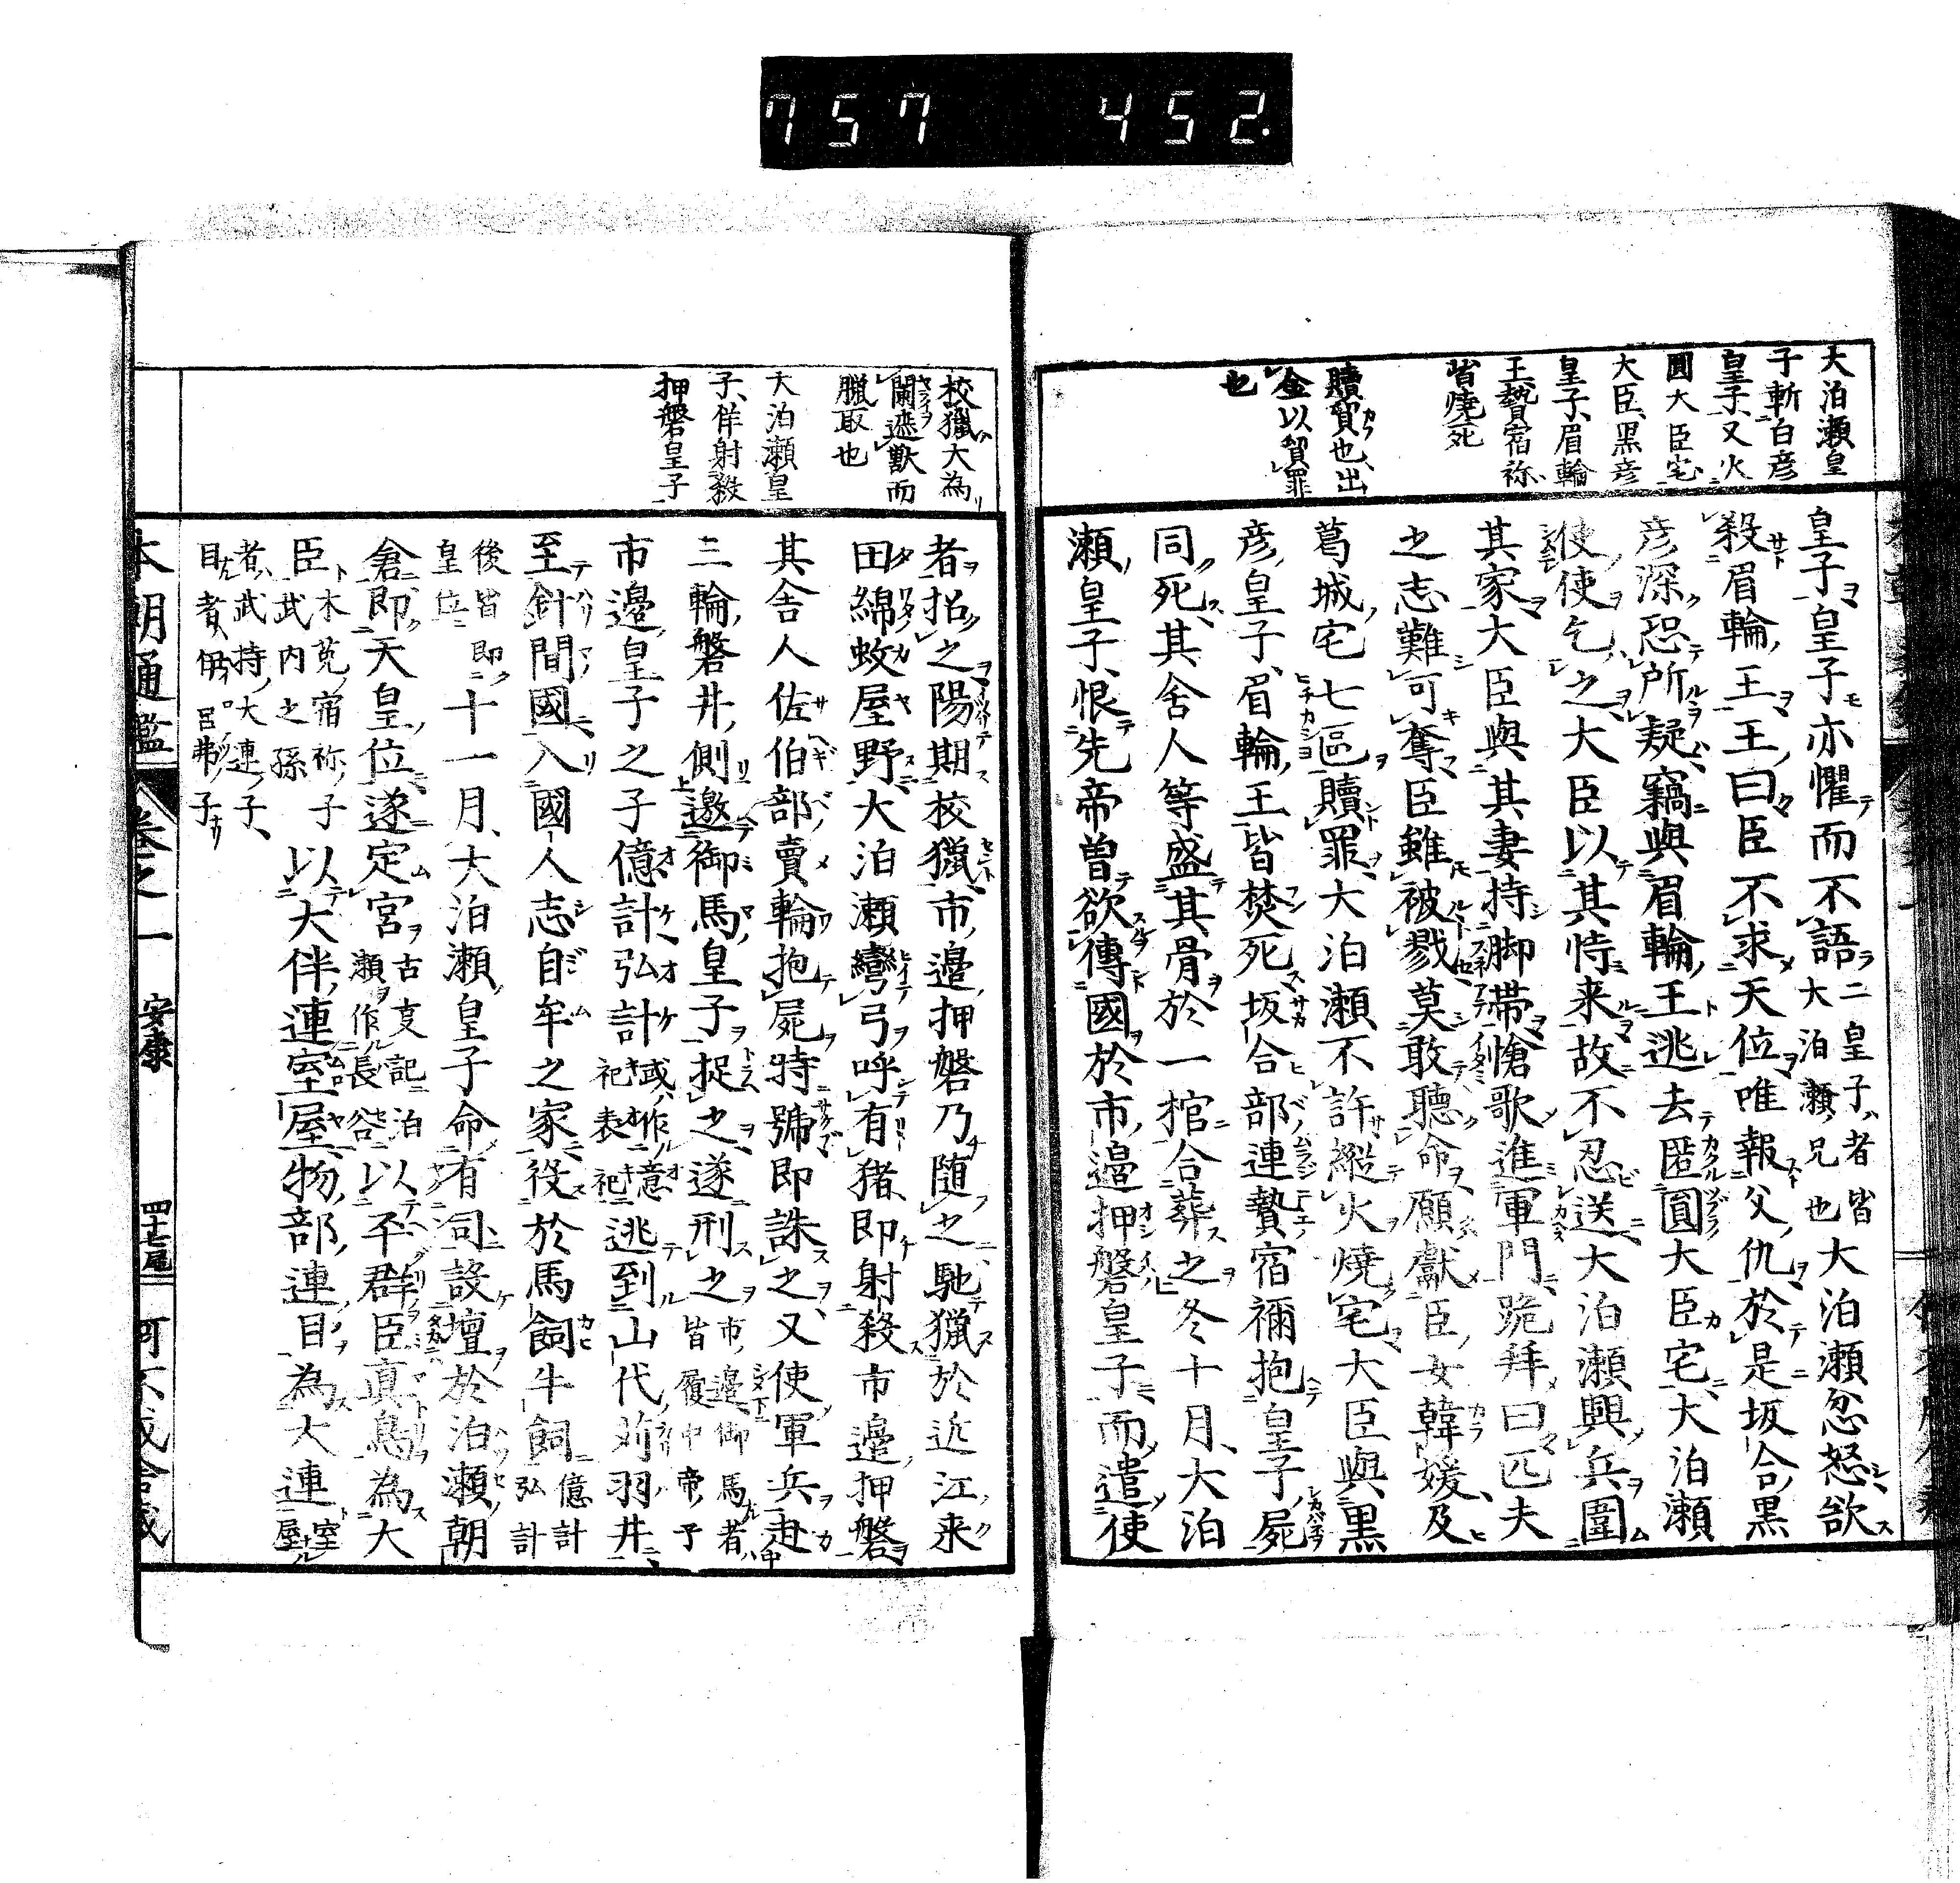 757 452.
大泊瀬皇
子斬白彦
皇子又火
圓大臣宅
大臣黒彦
皇子眉輪
王贄宿祢
皆燒死
贖貿也出
金以貿罪
也
皇子皇子亦懼而不語二皇子者皆大泊瀬兄也大泊瀬忽怒欲
殺眉輪王王曰臣不求天位唯報父仇於是坂合黒
彦深恐所疑竊與眉輪王逃去匿圓大臣宅大泊瀬
使使乞之大臣以其恃来故不忍送大泊瀬興兵圍
其家大臣與其妻持脚帯愴歌進軍門跪拜曰匹夫
之志難可奪臣雖被戮莫敢聽命願獻臣女韓媛及
葛城宅七區贖罪大泊瀬不許縱火燒宅大臣與黒
彦皇子眉輪王皆焚死坂合部連贄宿禰抱皇子屍
同死其舍人等盛其骨於一棺合葬之冬十月大泊
瀬皇子恨先帝曽欲傳國於市邉押磐皇子而遣使
校獵大為
闌遮獣而
臘取也
大泊瀬皇
子佯射殺
押磐皇子
者招之陽期校獵市邉押磐乃随之馳獵於近江来
田綿蚊屋野大泊瀬彎弓呼有猪即射殺市邉押磐
其舎人佐伯部賣輪抱屍時號即誅之又使軍兵赴
三輪磐井側邀御馬皇子捉之遂刑之市邉御馬者皆履中帝子
市邉皇子之子億計弘計或作意祀表祀逃到山代苅羽井
至針間國入國人志自牟之家役於馬飼牛飼億計弘計
後皆即皇位十一月大泊瀬皇子命有司設壇於泊瀬朝
倉即天皇位遂定宮古事記泊瀬作長谷以平群臣真鳥為大
臣木菟宿祢子武内之孫以大伴連室屋物部連目為大連室屋
者武持大連子
目者伊呂弗子
本朝通鑑 卷之一 安康 四十七尾